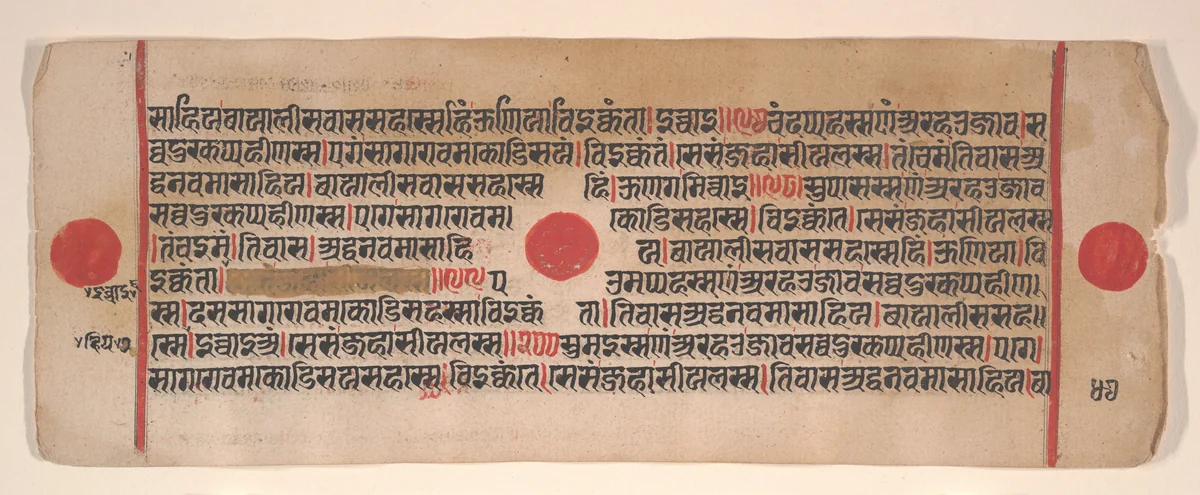 माहिअबायालीसवाससहस्सेहिंऊणिआविइक्कंता।इच्चाइ॥१९७चंदप्पहस्सणंअरहउजाव।स
व्वदुरकप्पहीणस्स।एगंसागरोवमकोडिसयं।विइक्कंतं।सेसंजहासीअलस्स।तंचइमंतिवासअ
द्धनवमासाहिअ।बायालीसवाससहस्से हिं।ऊणगमिच्चाइ॥१९८।सुपासस्सणंअरहउजाव
सव्वदुरकप्पहीणस्स।एगेसागरोवम। कोडिसहस्से।विइक्कंते।सेसंजहासीअलस्स
।तंचइमं।तिवास।अद्धनवमासाहि अ।बायालीसवाससहस्सेहिं।ऊणिआ।वि
इक्कंता।॥१९९ प उमप्पहस्सणंअरहउजावसव्वदुरकप्पहीण।
स्स।दससागरोवमकोडिसहस्साविइक्कं ता।तिवासअद्धनवमासाहिअ।बायालीससह॥
स्से।इच्चाइअं।सेसंजहासीअलस्स॥२००सुमइस्सणंअरहउजावसव्वदुरकप्पहीणस्स।एगे।
सागरोवमकोडिसयसहस्से।विइक्कंते।सेसंजहासीअलस्स।तिवासअद्धनवमासाहिअ।बा